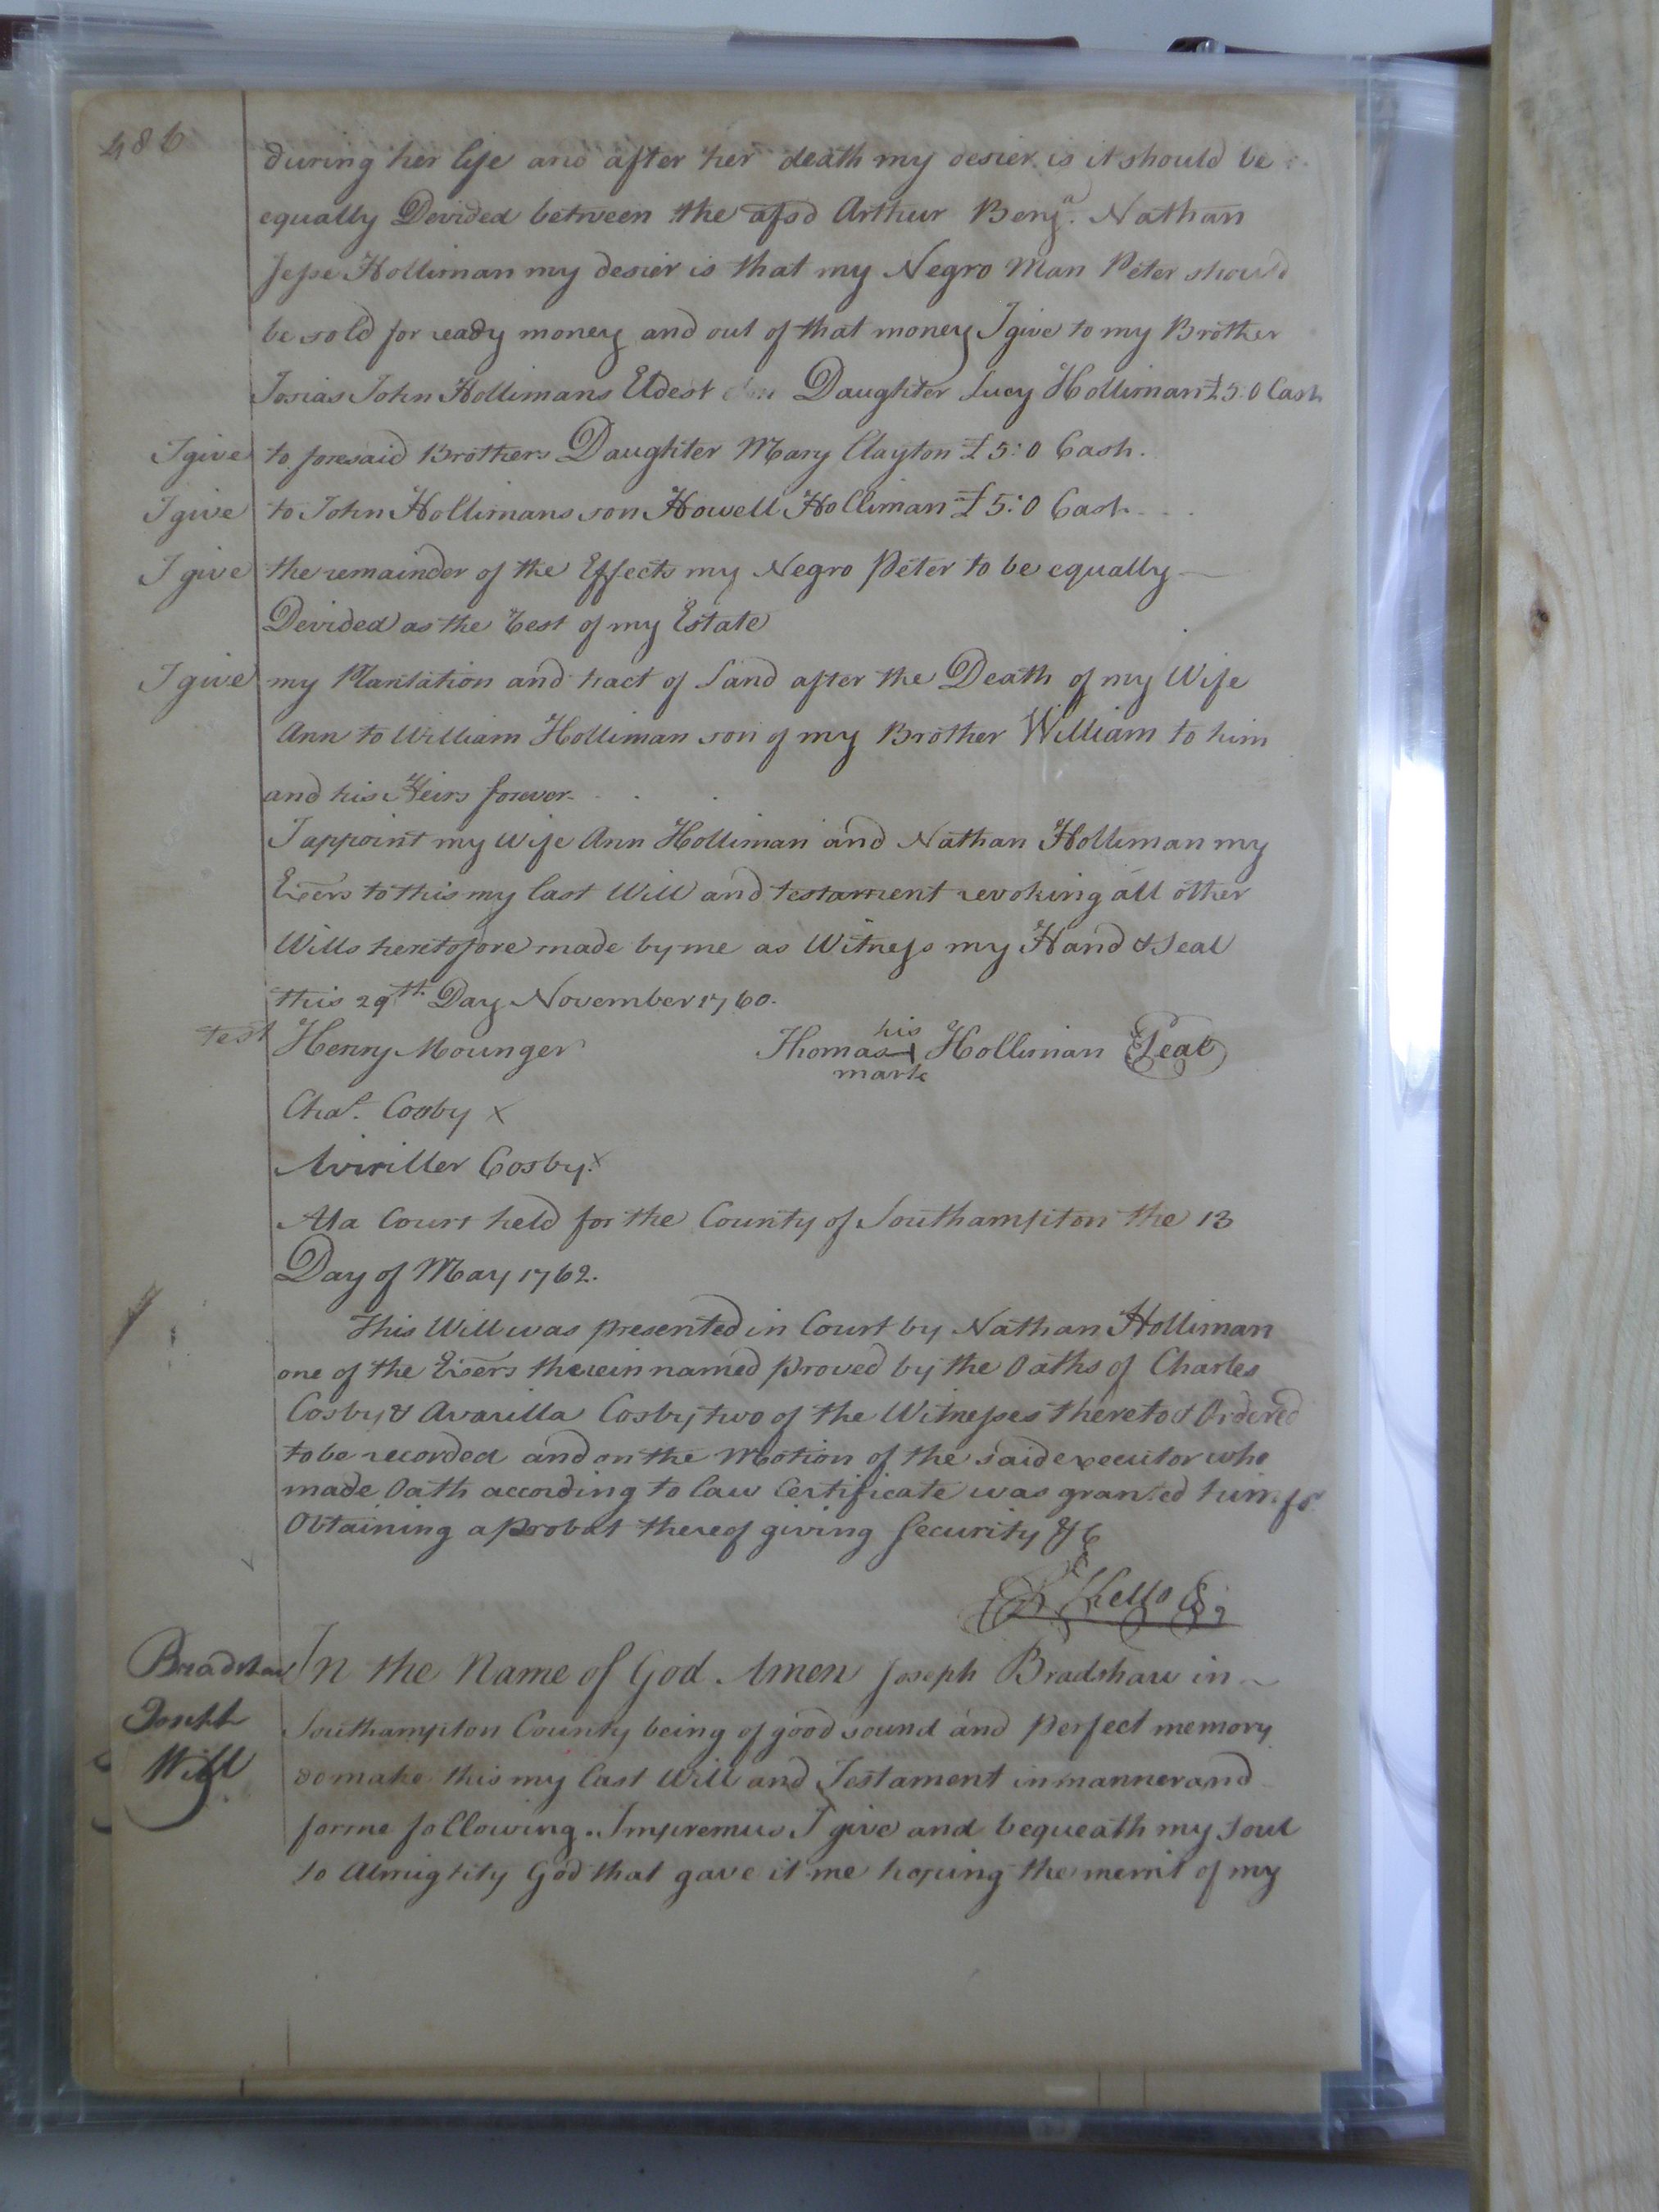 486
during her life and after her death my desier is it should be
equally Devided between the afsd Arthur Benja. Nathan
Jesse Holliman my desier is that my Negro Man Peter should
be sold for ready money and out of that money I give to my Brother
Josias John Hollimans Eldest Daughter Lucy Holliman £5:0 Cash
I give to foresaid Brothers Daughter Mary Clayton £5:0 Cash.
I give to John Hollimans son Howell Holliman £5:0 Cash
I give the remainder of the Effects my Negro Peter to be equally
Devided as the rest of my Estate
I give my Plantation and tract of Land after the Death of my Wife
Ann to William Holliman son of my Brother William to him
and his Heirs forever
I appoint my Wife Ann Holliman and Nathan Holliman my
Exers to this my last Will and testament revoking all other
Wills heretofore made by me as Witness my Hand & Seal
this 29th Day November 1760.
test Henry Mounger Thomas his mark Holliman Seal
Chas. Cosby x
Aviriller Cosby x
At a Court held for the County of Southampton the 13
Day of May 1762.
This Will was presented in Court by Nathan Holliman
one of the Exers therein named proved by the Oaths of Charles
Cosby & Avarilla Cosby two of the Witnesses thereto & Ordered
to be recorded and on the Motion of the said executor who
made Oath according to law Certificate was granted him for
Obtaining a probat thereof giving Security &c
R Kello
Bradshaw In the Name of God Amen Joseph Bradshaw in
Joseph Southampton County being of good sound and perfect memory
Will do make this my last Will and Testament in manner and
forme following. Impremus I give and bequeath my Soul
to Almighty God that gave it me hoping the merrit of my